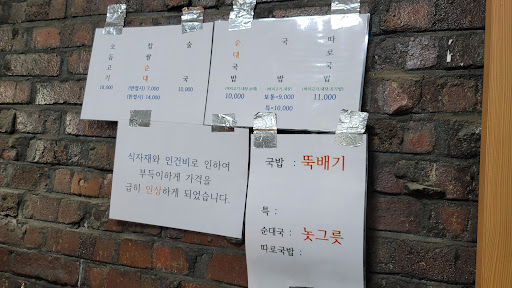 모듬고기
18,000
찹쌀순대
(반접시) 7,000
(한접시) 14,000
술국
10,000
순대국밥
(머리고기,내장,순대)
10,000
국밥
(머리고기,내장)
보통=9,000
특=10,000
따로국밥
11,000
식자재와 인건비로 인하여
부득이하게 가격을
급히 인상하게 되었습니다.
국밥 : 뚝배기
특 :
순대국 : 놋그릇
따로국밥 :